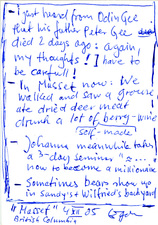 - I just heard from Odin Gee
that his father Peter Gee
died 2 days ago: again,
my thoughts! I have to
be carefull!
- In Masset now: We
walked and saw a grouse
ate dried deer meat
drank a lot of berry-wine
self-made
- Johanna meanwhile takes
a 3-day seminar "...
how to become a missionary
- Sometimes bears show up
in Sandy's + Wilfried's backyard
"Masset" 4 XII 05
British Columbia